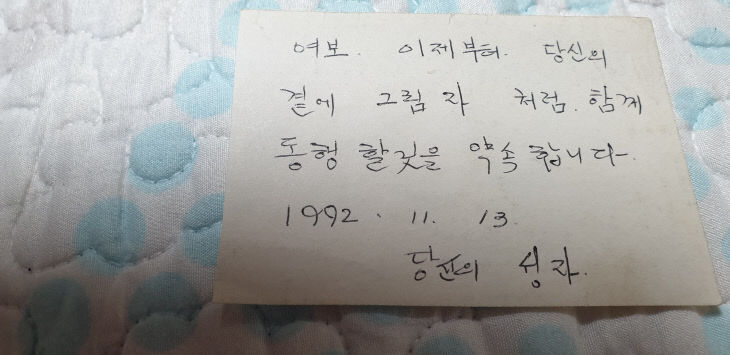 여보. 이제부터. 당신의
곁에 그림자 처럼. 함께
동행 할것을 약속합니다.
1992. 11. 13
당신의 성자.